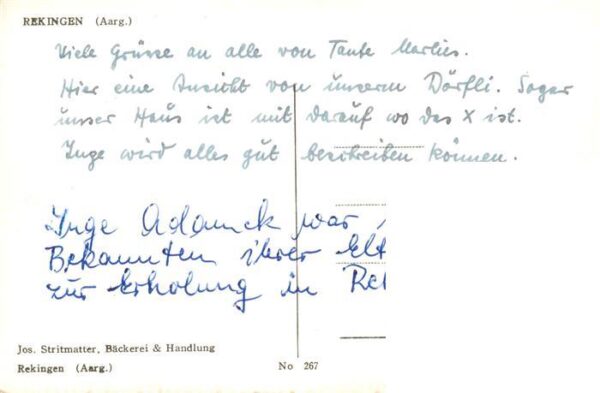 REKINGEN (Aarg.)
Viele Grüsse an alle von Tante Marlies.
Hier eine Ansicht von unserm Dörfli. Sogar
unser Haus ist mit darauf wo das X ist.
Inge wird alles gut beschreiben können.
Inge Adamck war
Bekannten ihrer Elt
zur Erholung in Rek
Jos. Stritmatter, Bäckerei & Handlung
Rekingen (Aarg.) No 267